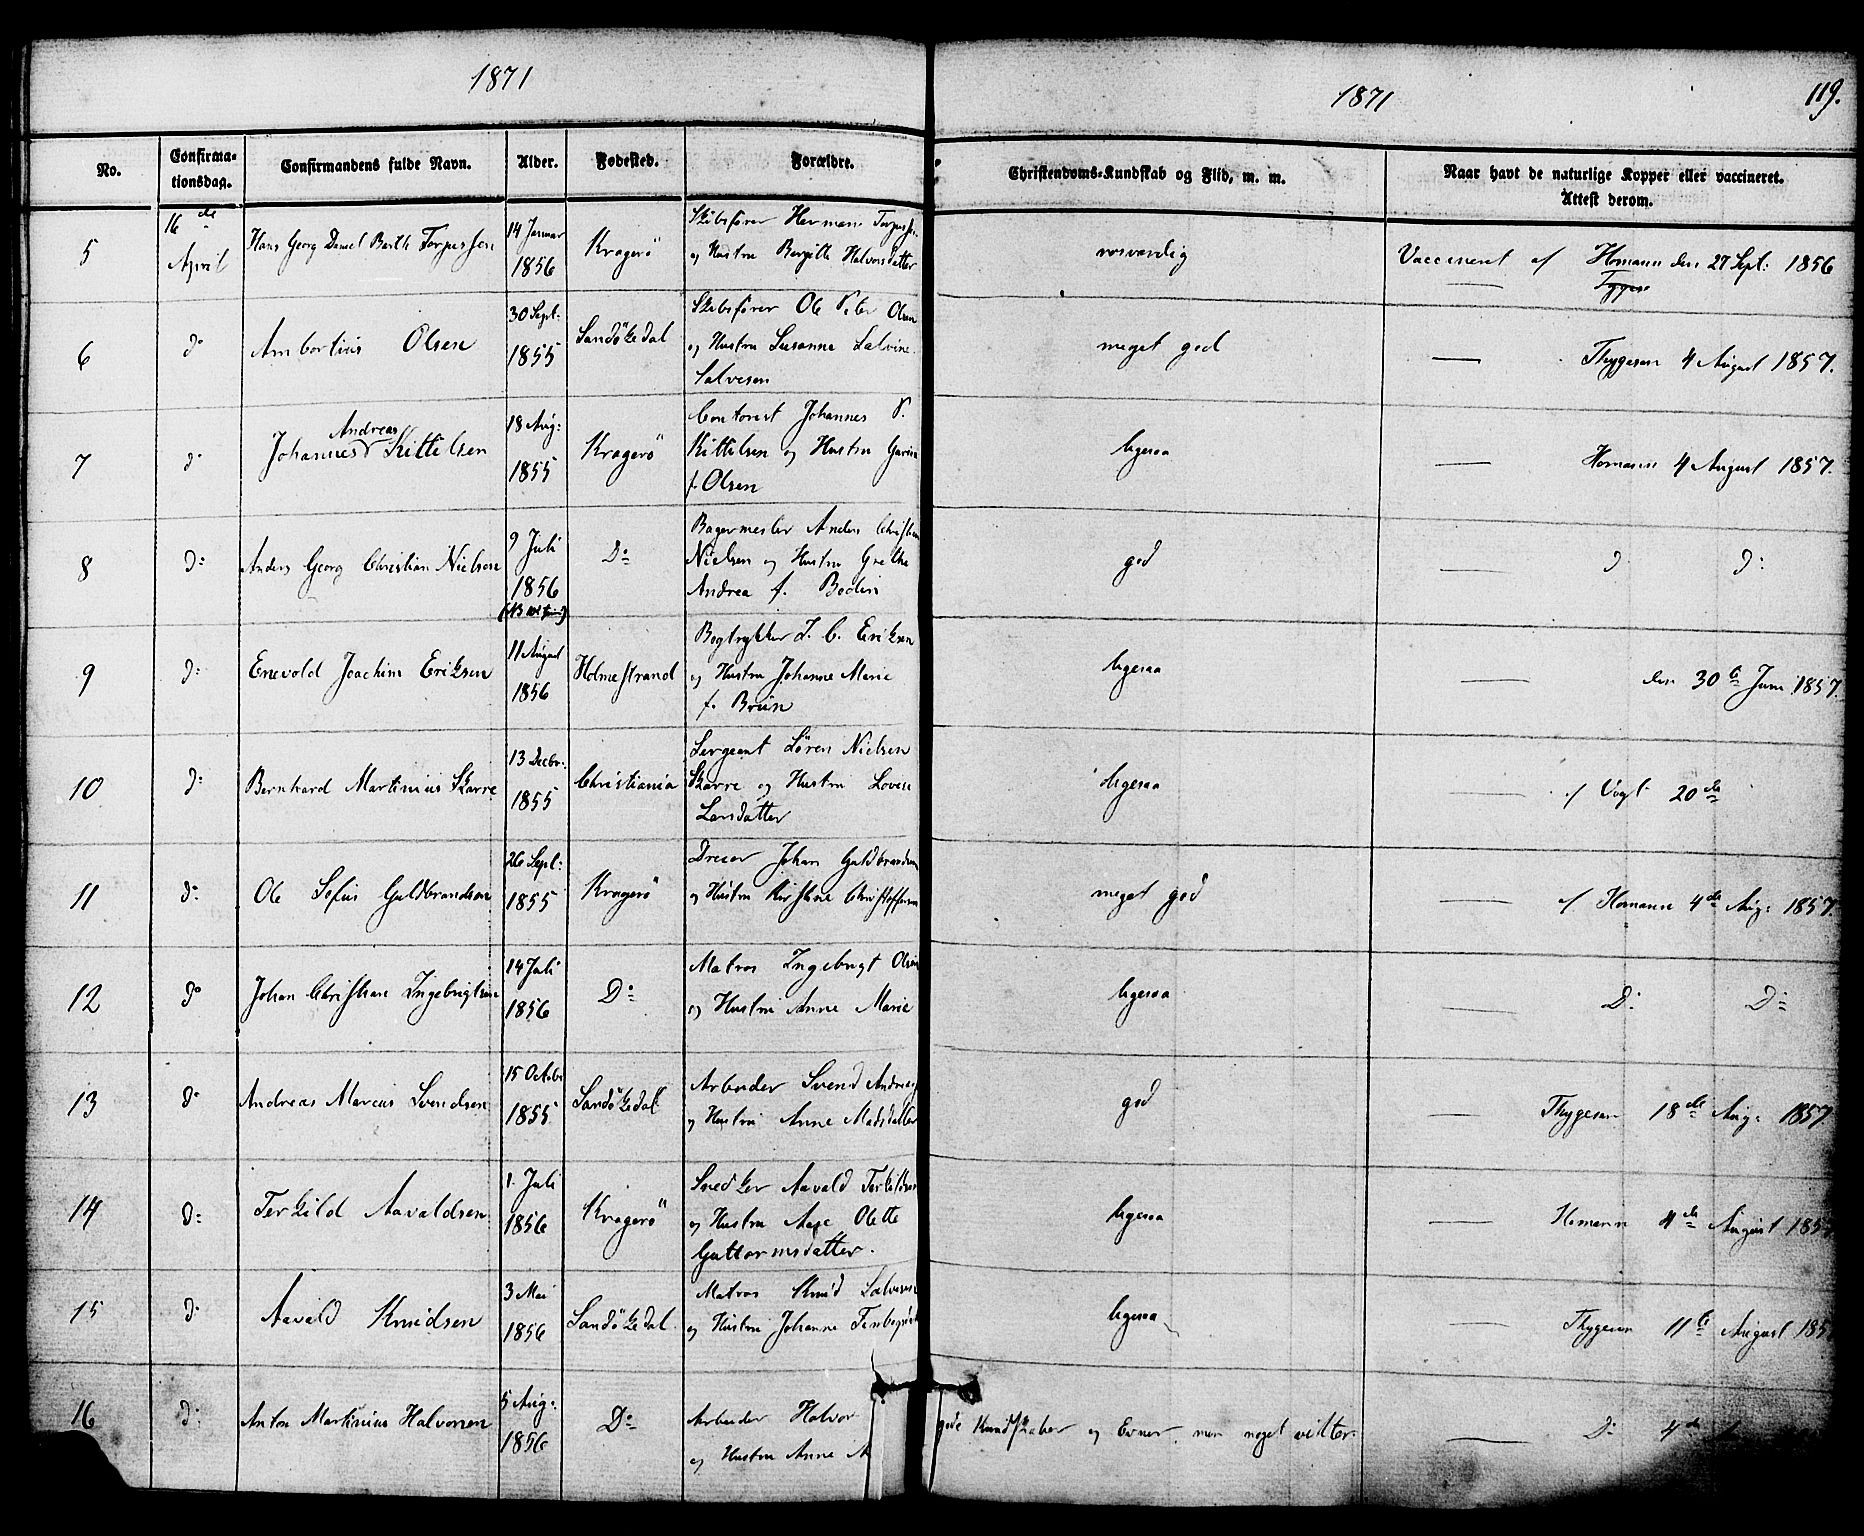 1871
1871
119.
No.
Confirma-
tionsdag.
Confirmandens fulde Navn.
Alder.
Fødested.
Forældre.
Christendoms-Kundskab og Flid, m. m.
Naar havt de naturlige Kopper eller vaccineret.
Attest derom.
5
16 de
April
Hans Georg Daniel Barth Torgersen
14 Januar
1856
Kragerö
Skibsfører Herman
og Hustru Birgitte Halvorsdatter
Vaccineret af Homann den 27 Sept: 1856
6
do
Ambortius Olsen
30 Sept:
1855
Sandökedal
Skibsfører Ole Peter Olsen
og Hustru Susanne Salvine
Salvesen
meget god
Thygesen 4 August 1857.
7
do
Andreas
Johannes Kittilsen
18 Aug:
1855
Kragerö
Contorist Johannes P.
Kittilsen og Hustru
f. Olsen
ligesaa
Homann 4 August 1857.
8
do
Anders Georg Christian Nielsen
9 Juli
1856
Do
Bagermester Anders Christian
Nielsen og Hustru Grethe
Andrea f. Bodin
god
do do
9
do
Enevold Joachim Eriksen
11 August
1856
Holmestrand
Bogtrykker J. C. Eriksen
og Hustru Johanne Marie
f. Bruun
ligesaa
den 30te Juni 1857.
10
do
Bernhard Martinius Skarre
13 Decbr:
1855
Christiania
Sergeant Sören Nielsen
Skarre og Hustru Lovise
Larsdatter
ligesaa
af Vogt 20de
11
do
Ole Sofus Guldbrandsen
26 Sept:
1855
Kragerö
Dreier Johan Guldbrandsen
og Hustru Kirstine Christoffersen
meget god
af Homann 4de Aug: 1857.
12
do
Johan Christian Ingebrigtsen
14 Juli
1856
Do
Matros Ingebrigt Olsen
og Hustru Anne Marie
ligesaa
Do Do
13
do
Andreas Marcus Svendsen
15 Octobr
1855
Sandökedal
Arbeider Svend Andreas
og Hustru Anne Madsdatter
god
Thygesen 18de Aug: 1857.
14
do
Terkild Aavaldsen
1. Juli
1856
Kragerö
Snedker Aavald Terkildsen
og Hustru Aase Olette
Guttormsdatter.
ligesaa
Homann 4de August 1857
15
do
Aavald Knudsen
3 Mai
1856
Sandökedal
Matros Knud Salvesen
og Hustru Johanne
ligesaa
Thygesen 11te August 185
16
do
Anton Martinius Halvorsen
5 Aug:
1856
Do
Arbeider Halvor
og Hustru Anne
gode Kundskaber og Evner, men noget
Do 4de